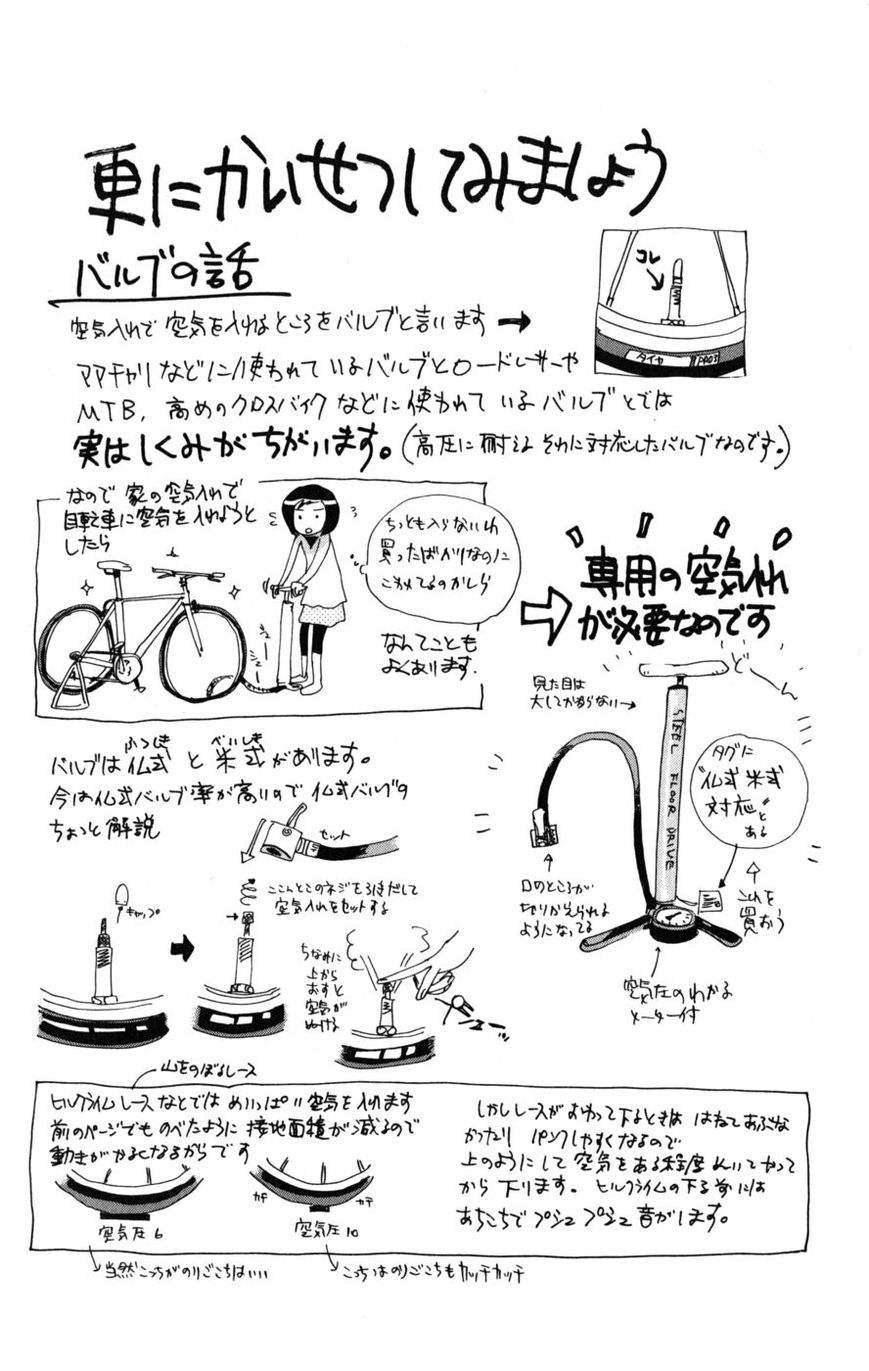 更にかいせつしてみましょう
バルブの話
コレ
タイヤ
空気入れで空気を入れるところをバルブと言います
ママチャリなどに使われているバルブとロードレーサーや
MTB、高めのクロスバイクなどに使われているバルブとでは
実はしくみがちがいます。(高圧に耐えるそれに対応したバルブなのです。)
なので家の空気入れで
自転車に空気を入れようと
したら
ちっとも入らないわ
買ったばかりなのに
こわれてるのかしら
シュー
シュー
なんてことも
よくあります.
専用の空気入れ
が必要なのです
どーん
見た目は
大してかわらない
STEEL FLOOR DRIVE
タグに
"仏式米式
対応"と
ある
これを
買おう
口のところが
切りかえられる
ようになってる
空気圧のわかる
メーター付
バルブは仏式と米式があります。
ふつしき
べいしき
今は仏式バルブ率が高いので仏式バルブの
ちょっと解説
セット
キャップ
ここんとこのネジをうきだして
空気入れをセットする
ちなみに
上から
おすと
空気が
ぬける
プシュー
山をのぼるレース
ヒルクライムレースなどではめいっぱい空気を入れます
前のページでものべたように接地面積が減るので
動きがかるくなるからです
空気圧6
カチ
カチ
空気圧10
しかしレースがおわって下るときははねてあぶな
かったりパンクしやすくなるので
上のようにして空気をある程度ぬいてやって
から下ります。ヒルクライムの下る前には
あちこちでプシュプシュ音がします。
当然こっちがのりごこちはいい
こっちはのりごこちもカッチカッチ